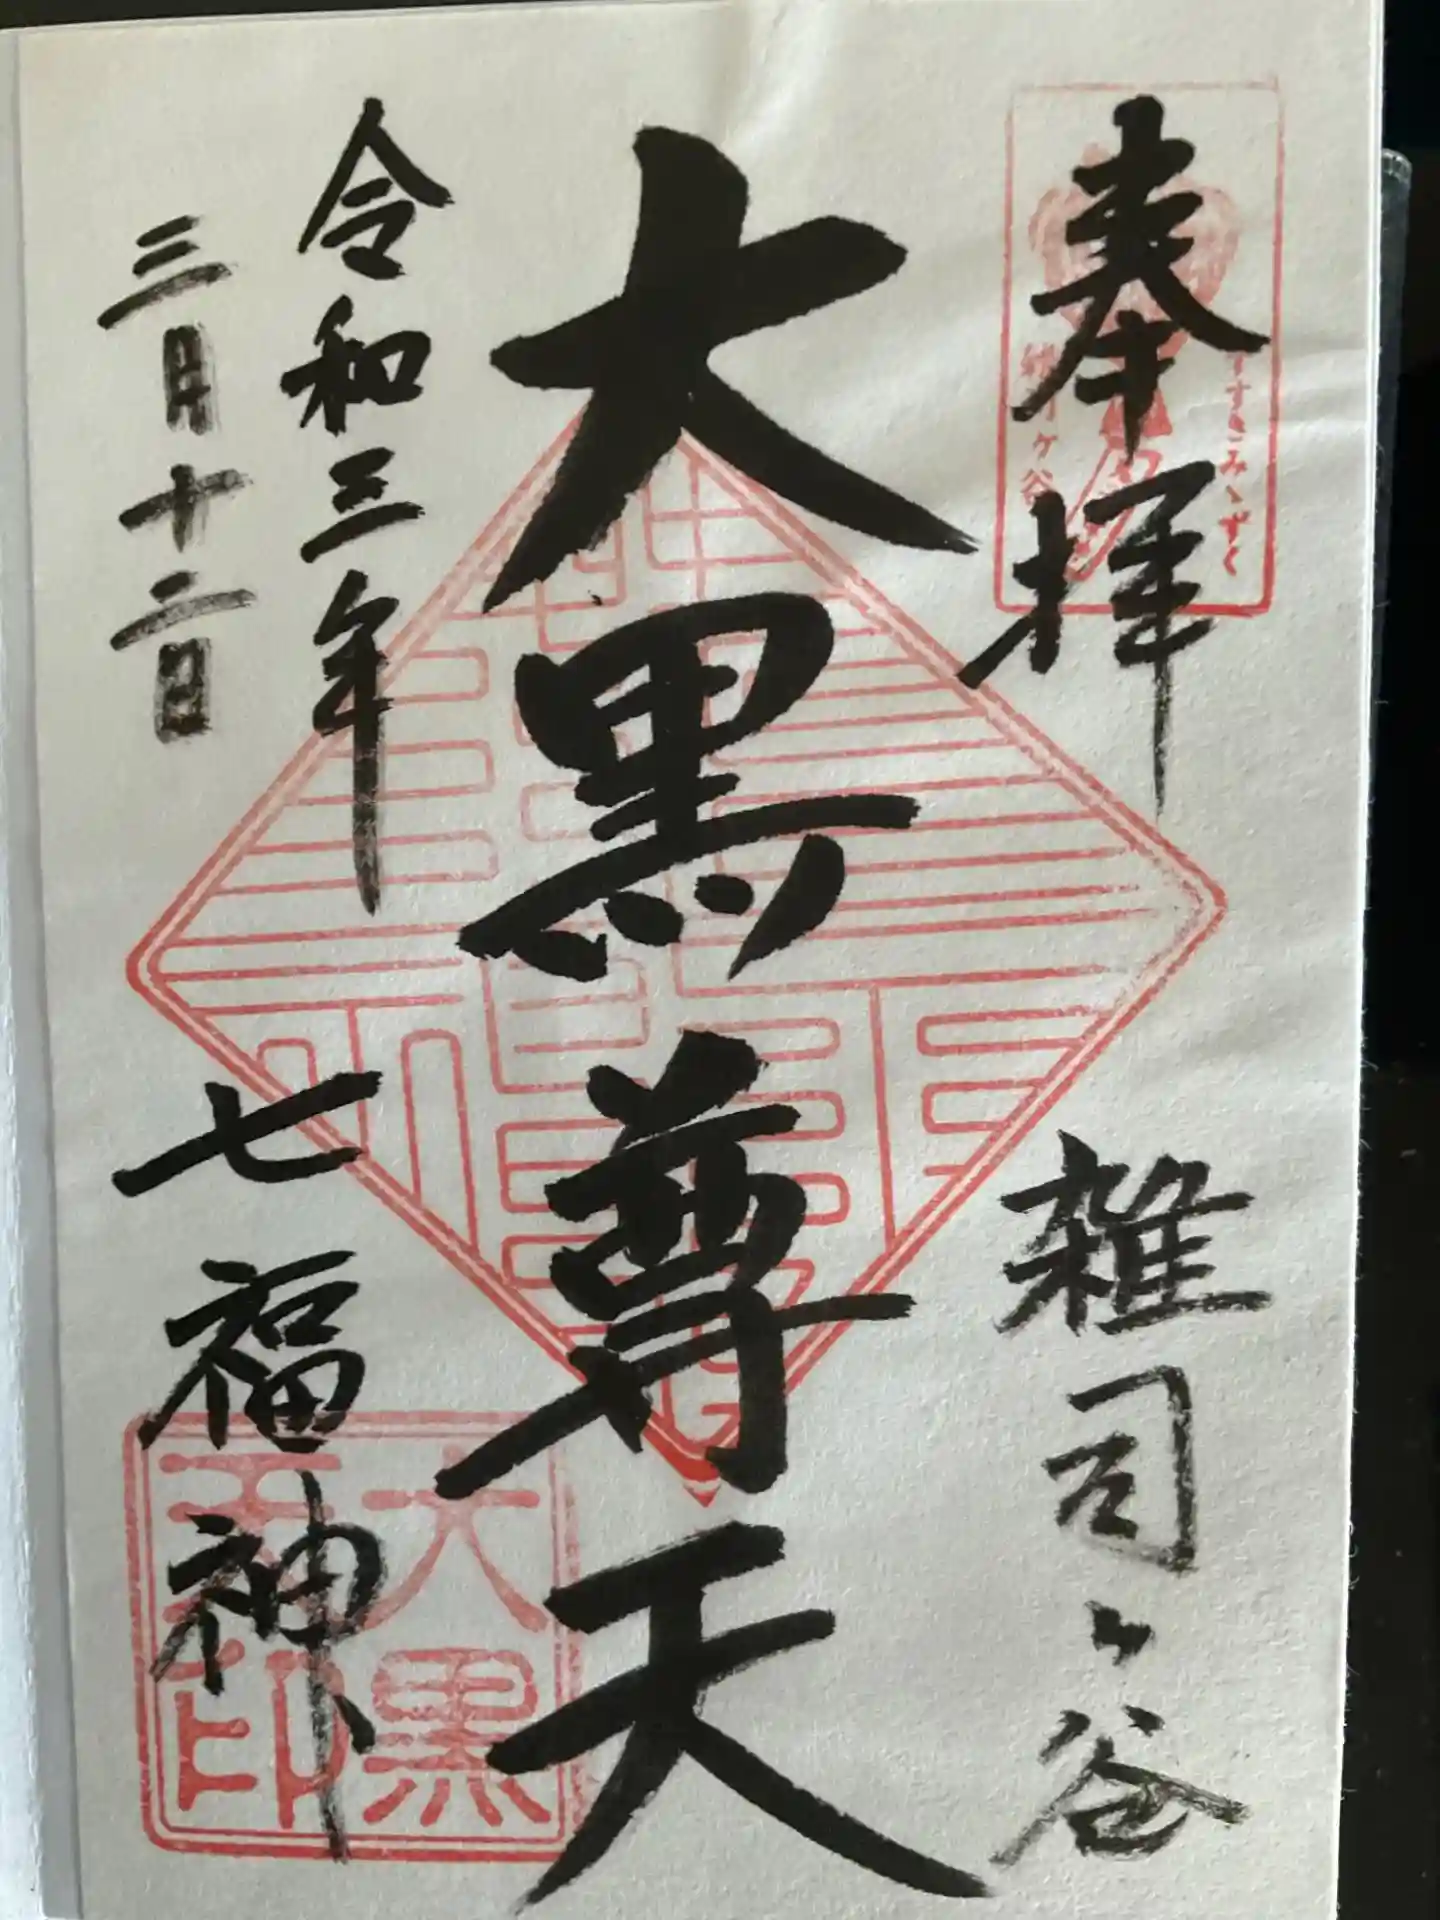 奉拝
雑司ヶ谷
すすきみゝずく
大黒尊天
令和三年
三月十二日
七福神
大黒
天印